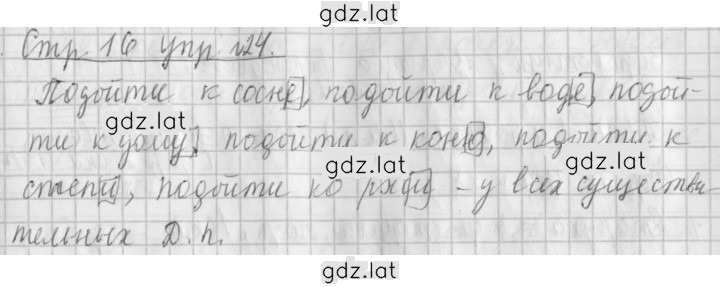 gdz.lat
Стр. 16 упр. 24.
Подойти к сосне, подойти к воде, подой-
gdz.lat
ти к дому, подойти к коню, подойти к
gdz.lat gdz.lat
степи, подойти ко ржи - у всех существи-
тельных Д. п.
gdz.lat